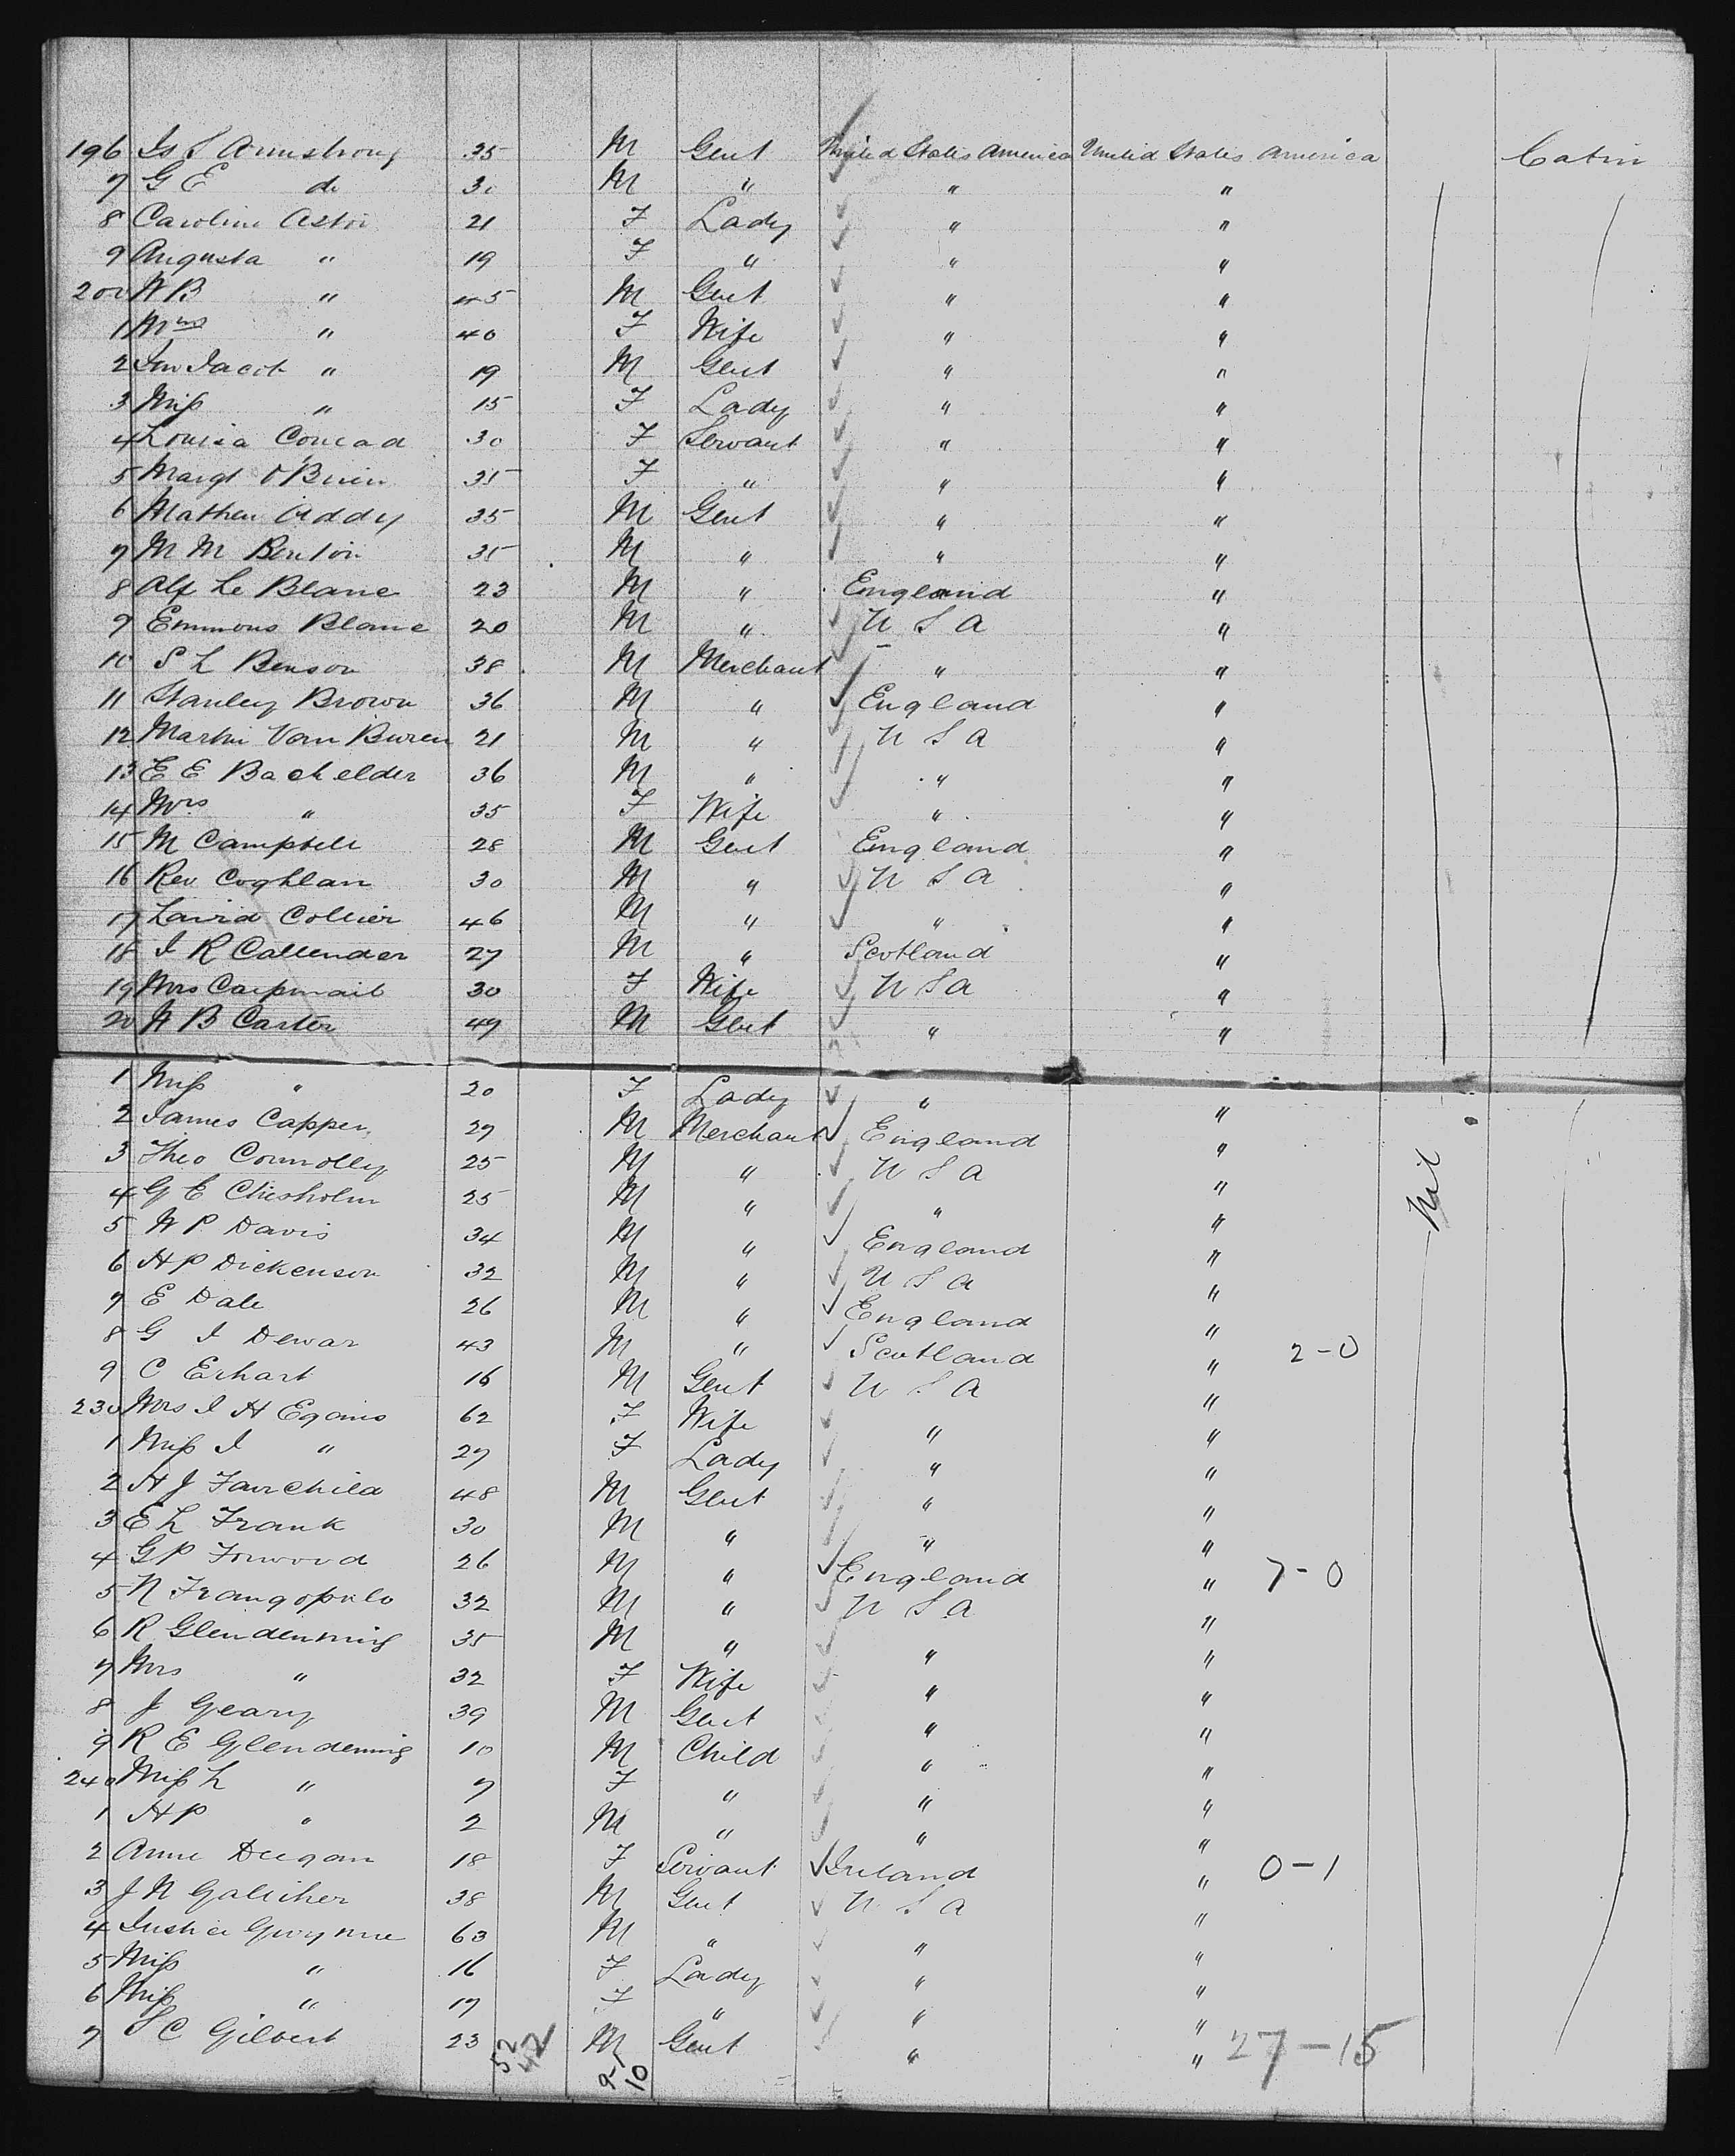 196 Js S Armstrong 35 M Gent United States America United States America Cabin
7 G E do 30 M " " "
8 Caroline Astor 21 F Lady " "
9 Augusta " 19 F " " "
200 W B " 45 M Gent " "
1 Mrs " 40 F Wife " "
2 Jno Jacob " 19 M Gent " "
3 Miss " 15 F Lady " "
4 Louisa Conrad 30 F Servant " "
5 Margt O'Brien 35 F " " "
6 Mathew Addy 35 M Gent " "
7 M M Benton 35 M " " "
8 Alf Le Blanc 23 M " England "
9 Emmons Blaine 20 M " U S A "
10 S L Benson 38 M Merchant " "
11 Stanley Brown 36 M " England "
12 Martin Van Buren 21 M " U S A "
13 E E Bachelder 36 M " " "
14 Mrs " 35 F Wife " "
15 M Campbell 28 M Gent England "
16 Rev Coghlan 30 M " U S A "
17 Laird Collier 46 M " " "
18 J R Callender 27 M " Scotland "
19 Mrs Carpmail 30 F Wife U S A "
20 W B Carter 49 M Gent " "
1 Miss " 20 F Lady " "
2 James Capper 29 M Merchant England "
3 Theo Connolly 25 M " U S A " Nil
4 G E Chisholm 25 M " " "
5 W P Davis 34 M " England "
6 H P Dickenson 32 M " U S A "
7 E Dale 26 M " England "
8 G J Dewar 43 M " Scotland " 2-0
9 C Erhart 16 M Gent U S A "
230 Mrs J H 62 F Wife " "
1 Miss J " 27 F Lady " "
2 H J Fairchild 48 M Gent " "
3 E L Frank 30 M " " "
4 G P Forwood 26 M " England " 7-0
5 N Frangopulo 32 M " U S A "
6 R Glendenning 35 M " " "
7 Mrs " 32 F Wife " "
8 J Geary 39 M Gent " "
9 R E Glendenning 10 M Child " "
240 Miss L " 7 F " " "
1 H P " 2 M " " "
2 Anne Deegan 18 F Servant Ireland " 0-1
3 J N Galliher 38 M Gent U S A "
4 Justice Gwynne 63 M " " "
5 Miss " 16 F Lady " "
6 Miss " 17 F " " "
7 S C Gilbert 23 M Gent " " 27-15
52 42 10